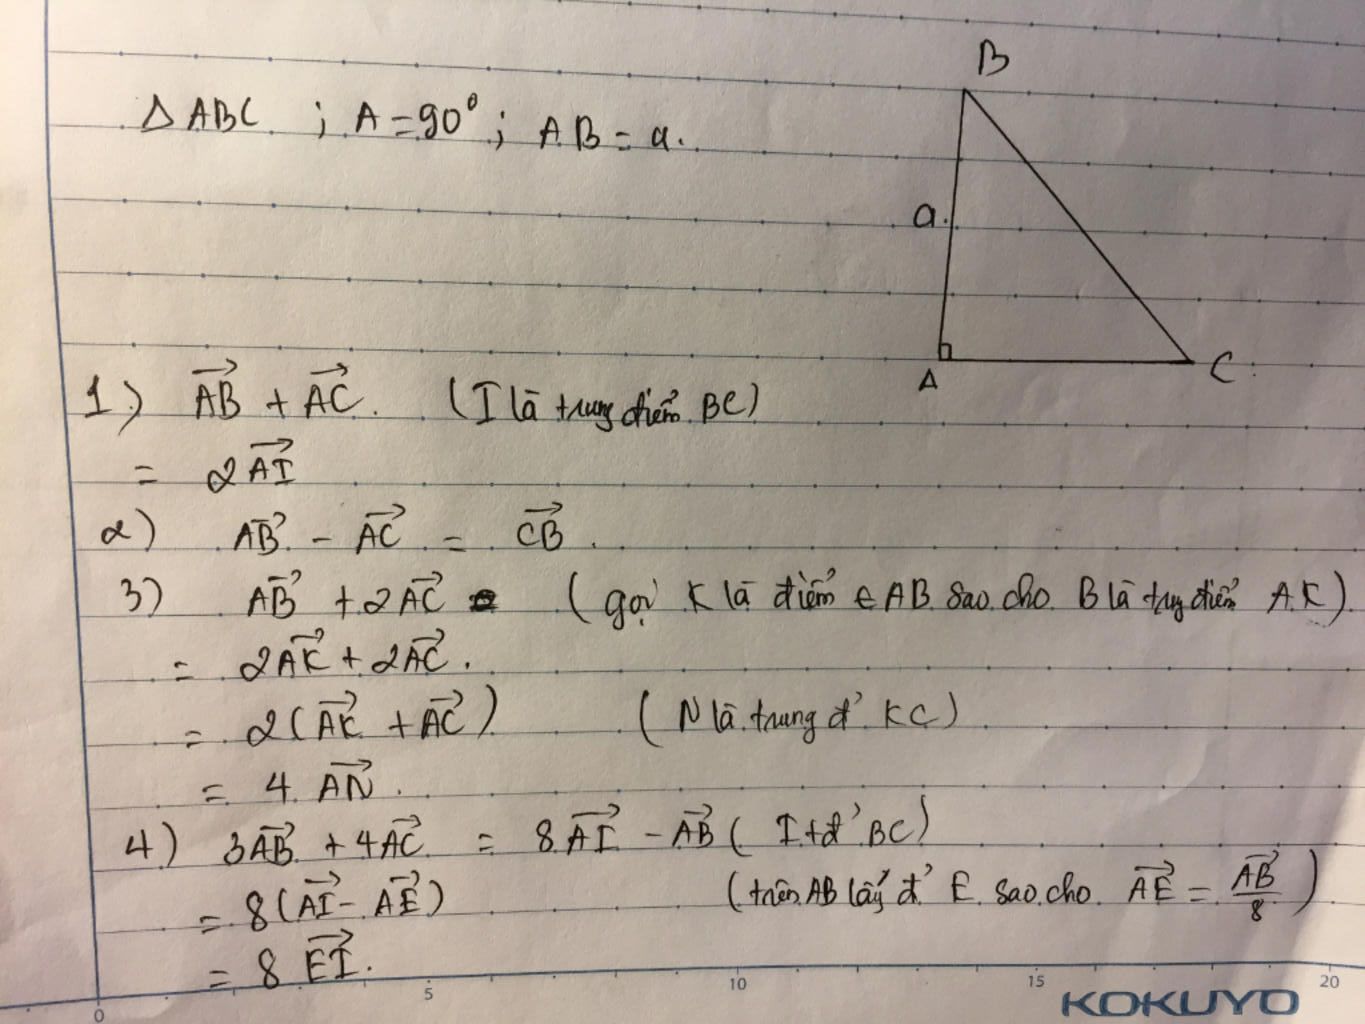 B
Δ ABC ; A = 90° ; AB = a.
a.
A
C
1) AB→ + AC→. (I là trung điểm BC)
= 2AI→
2) AB→ - AC→ = CB→.
3) AB→ + 2AC→ (gọi K là điểm ∈ AB sao cho B là trung điểm AK)
= 2AK→ + 2AC→.
= 2(AK→ + AC→) (N là trung đ' KC)
= 4 AN→.
4) 3AB→ + 4AC→ = 8AI→ - AB→ (I tđ' BC)
= 8(AI→ - AE→) (trên AB lấy đ' E sao cho AE→ = AB→/8)
= 8 EI→.
0 5 10 15 20
KOKUYO